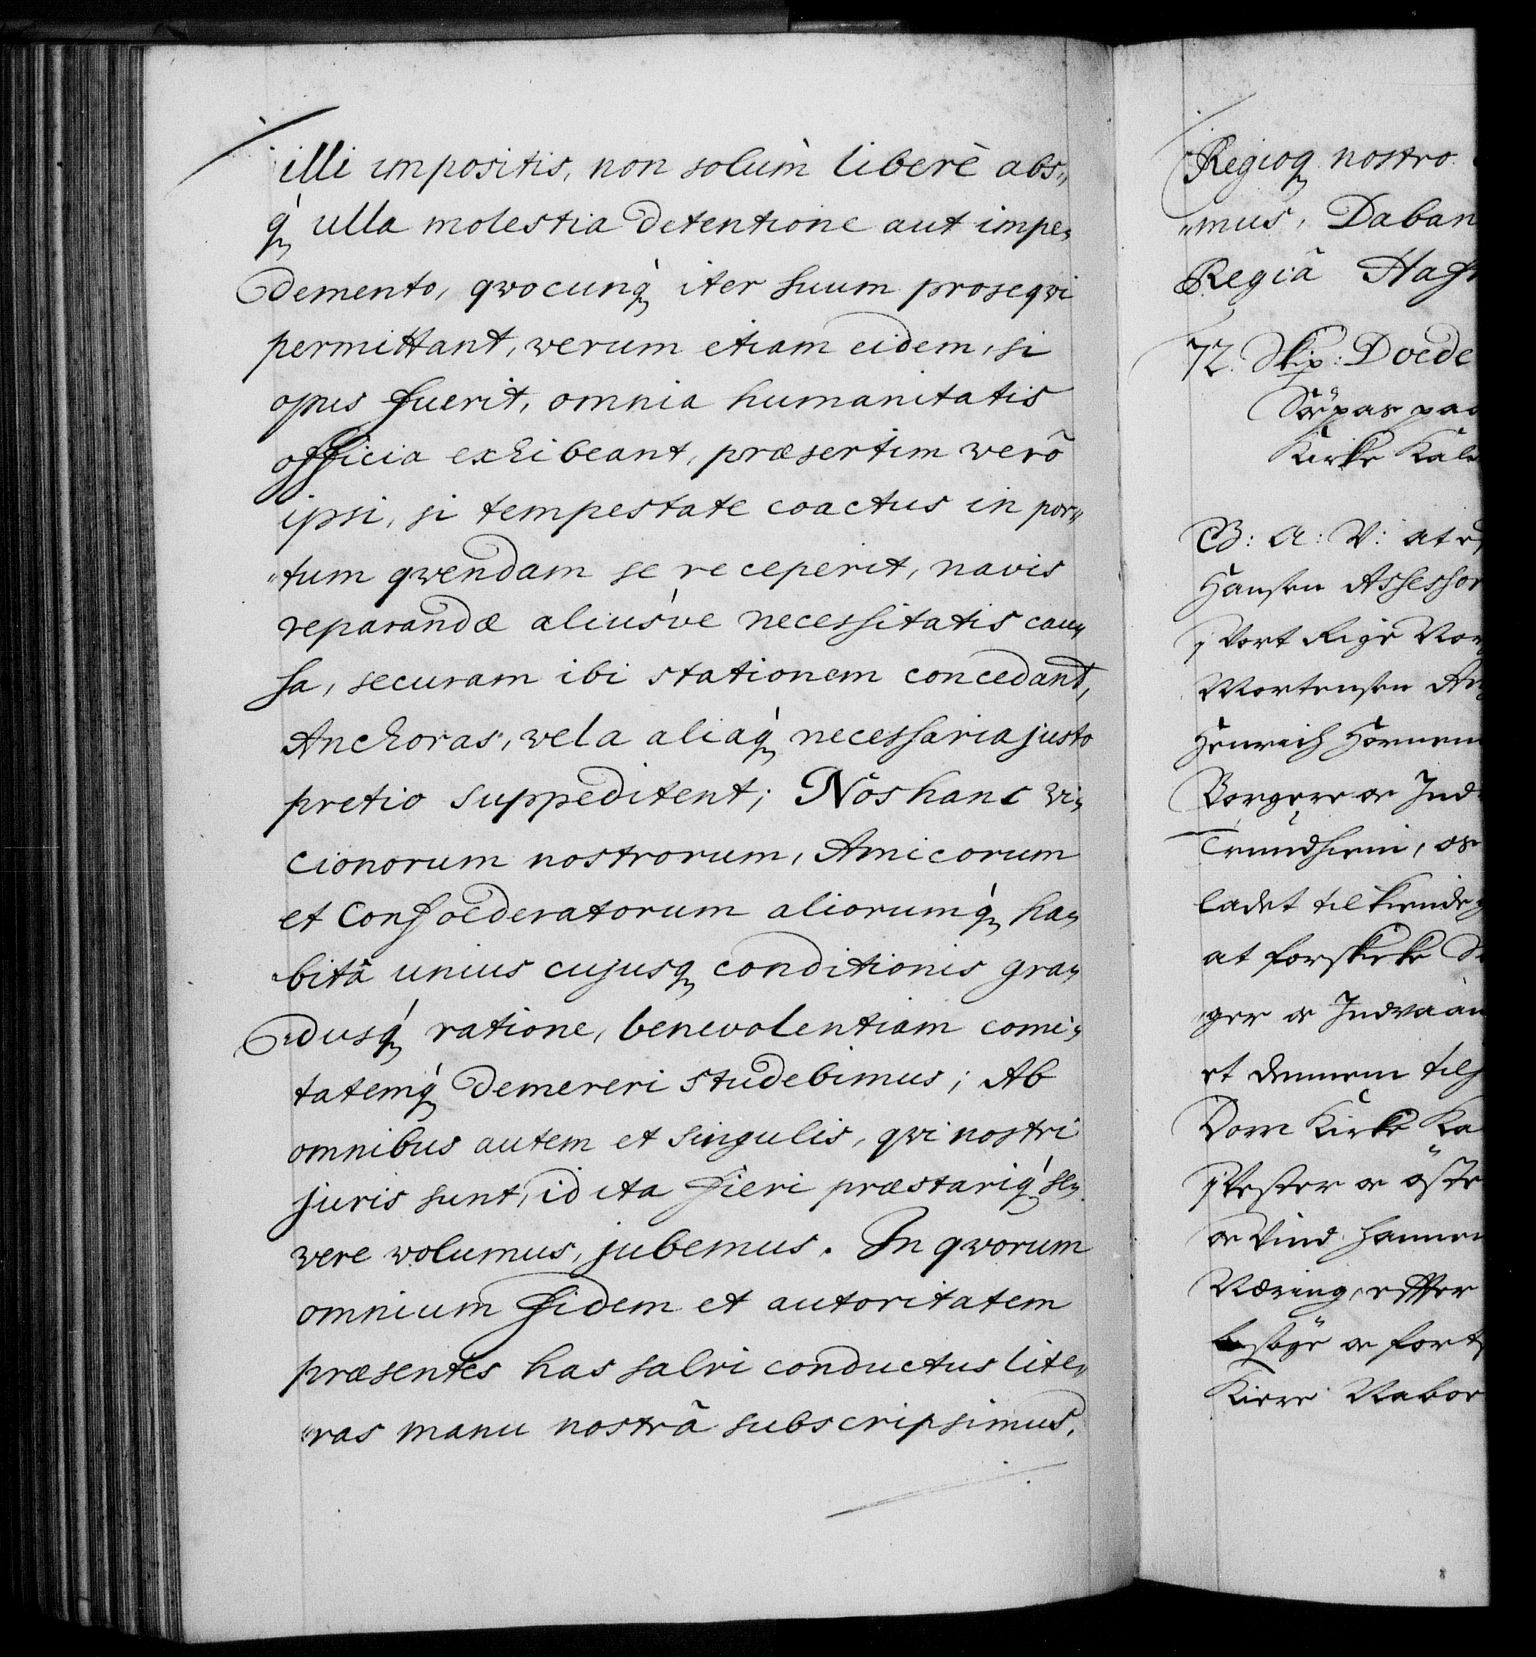 illi impositis, non solùm liberè abs„
q́ꝫ ulla molestia detentione aut impe„
demento, qvocunq́ꝫ iter suum proseqvi
permittant, verum etiam eidem, si
opus fuerit, omnia humanitatis
officia exhibeant, præsertim verò
ipsi, si tempestate coactus in por„
„tum qvendam se receperit, navis
reparandæ aliusve necessitatis cau„
sa, securam ibi stationem concedant,
Anchoras, vela aliaq́ꝫ necessaria justo
pretio suppeditent; Nos hanc vi„
cionorum nostrorum, Amicorum
et Confoederatorum aliorumq́ꝫ ha„
bitâ unius cujusqꝫ conditionis gra„
„dusq́ꝫ ratione, benevolentiam comi„
tatemq́ꝫ demereri studebimus; Ab
omnibus autem et singulis, qvi nostri
juris sunt, id ita fieri præstariq́ꝫ se„
vere volumus, jubemus. In qvorum
omnium fidem et autoritatem
præsentes has salvi conductus lite„
„ras manu nostrâ subscripsimus,
Regioqꝫ nostro
„mus, Daban
Regiâ Hafn
72. Skip: Doede
Kirke Kald
C3: A: V: at
Hansen Assessor
i Vort Rige Nor
Mortensen An
Henrich Hornem
Borgere oc Ind
Trundhiem, os
ladet tilkiende
at forskicke
ger oc Indvaan
et dennem til
Dom Kirke Ka
i Vester oc öste
oc Vind hannem
Næring, effter
besöge oc fort
Kiere Nabor